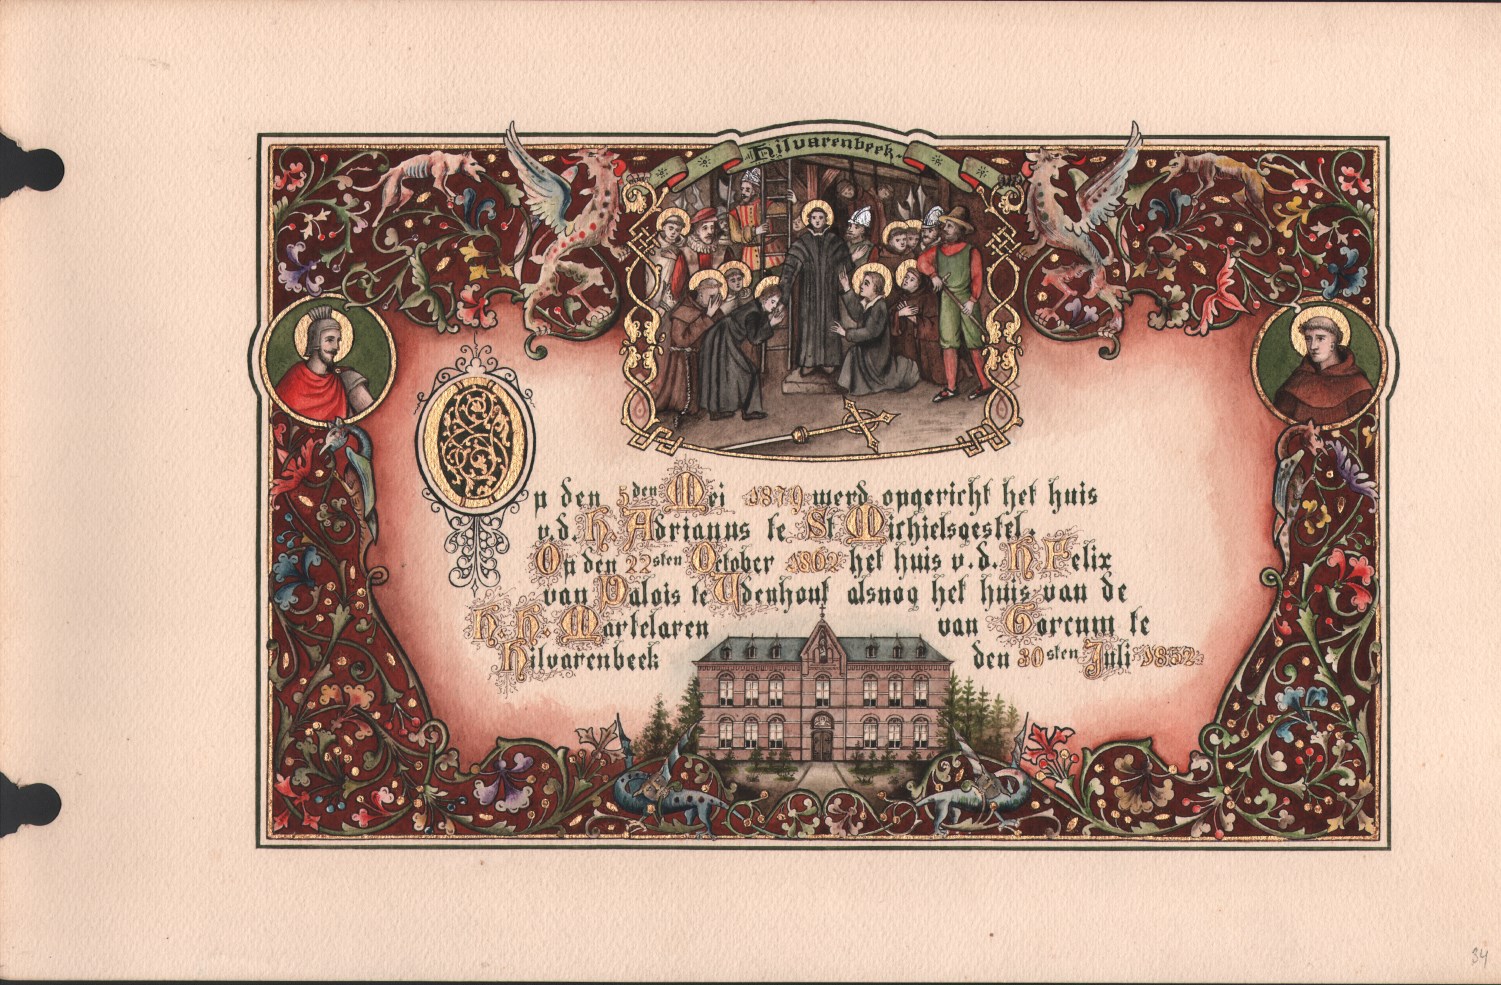 Hilvarenbeek.
Op den 5den Mei 1879 werd opgericht het huis
v.d. H. Adrianus te St Michielsgestel.
Op den 22sten October 1862 het huis v.d. H. Felix
van Valois te Udenhout alsnog het huis van de
H. H. Martelaren van Gorcum te
Hilvarenbeek den 30sten Juli 1852
34